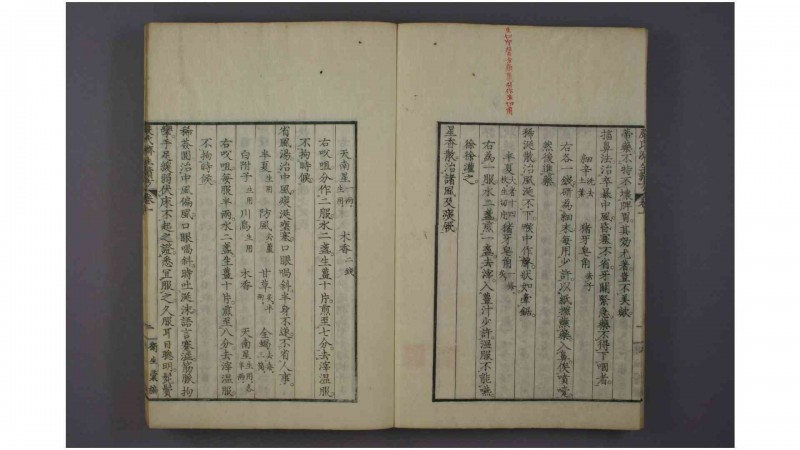 藥不特不壞脾胃其效尤著豈不美歟
搐鼻法治卒暴中風昏塞不省牙關緊急藥不得下咽者
細辛洗去土葉 猪牙皂角去子
右各一錢研為細末每用少許以紙撚蘸藥入鼻俟噴嚏
然後進藥
稀涎散治風涎不下喉中作聲狀如牽鋸
半夏 猪牙皂角
右為一服水二盞煎一盞去滓入薑汁少許溫服不能嚥
徐徐灌之
星香散治諸風及痰厥
天南星一兩生用 木香二錢
右㕮咀分作二服水二盞生薑十片煎至七分去滓溫服
不拘時候
省風湯治中風痰涎壅塞口眼喎斜半身不遂不省人事
半夏生用 防風去蘆 甘草 全蝎去毒二箇
白附子生用 川烏生用 木香 天南星生用各半兩
右㕮咀每服半兩水二盞生薑十片煎至八分去滓溫服
不拘時候
稀薟圓治中風偏風口眼喎斜時吐涎沫語言蹇澁筋脈拘
攣手足緩弱伏床不起之證悉宜服之久服耳目聰明髭鬢